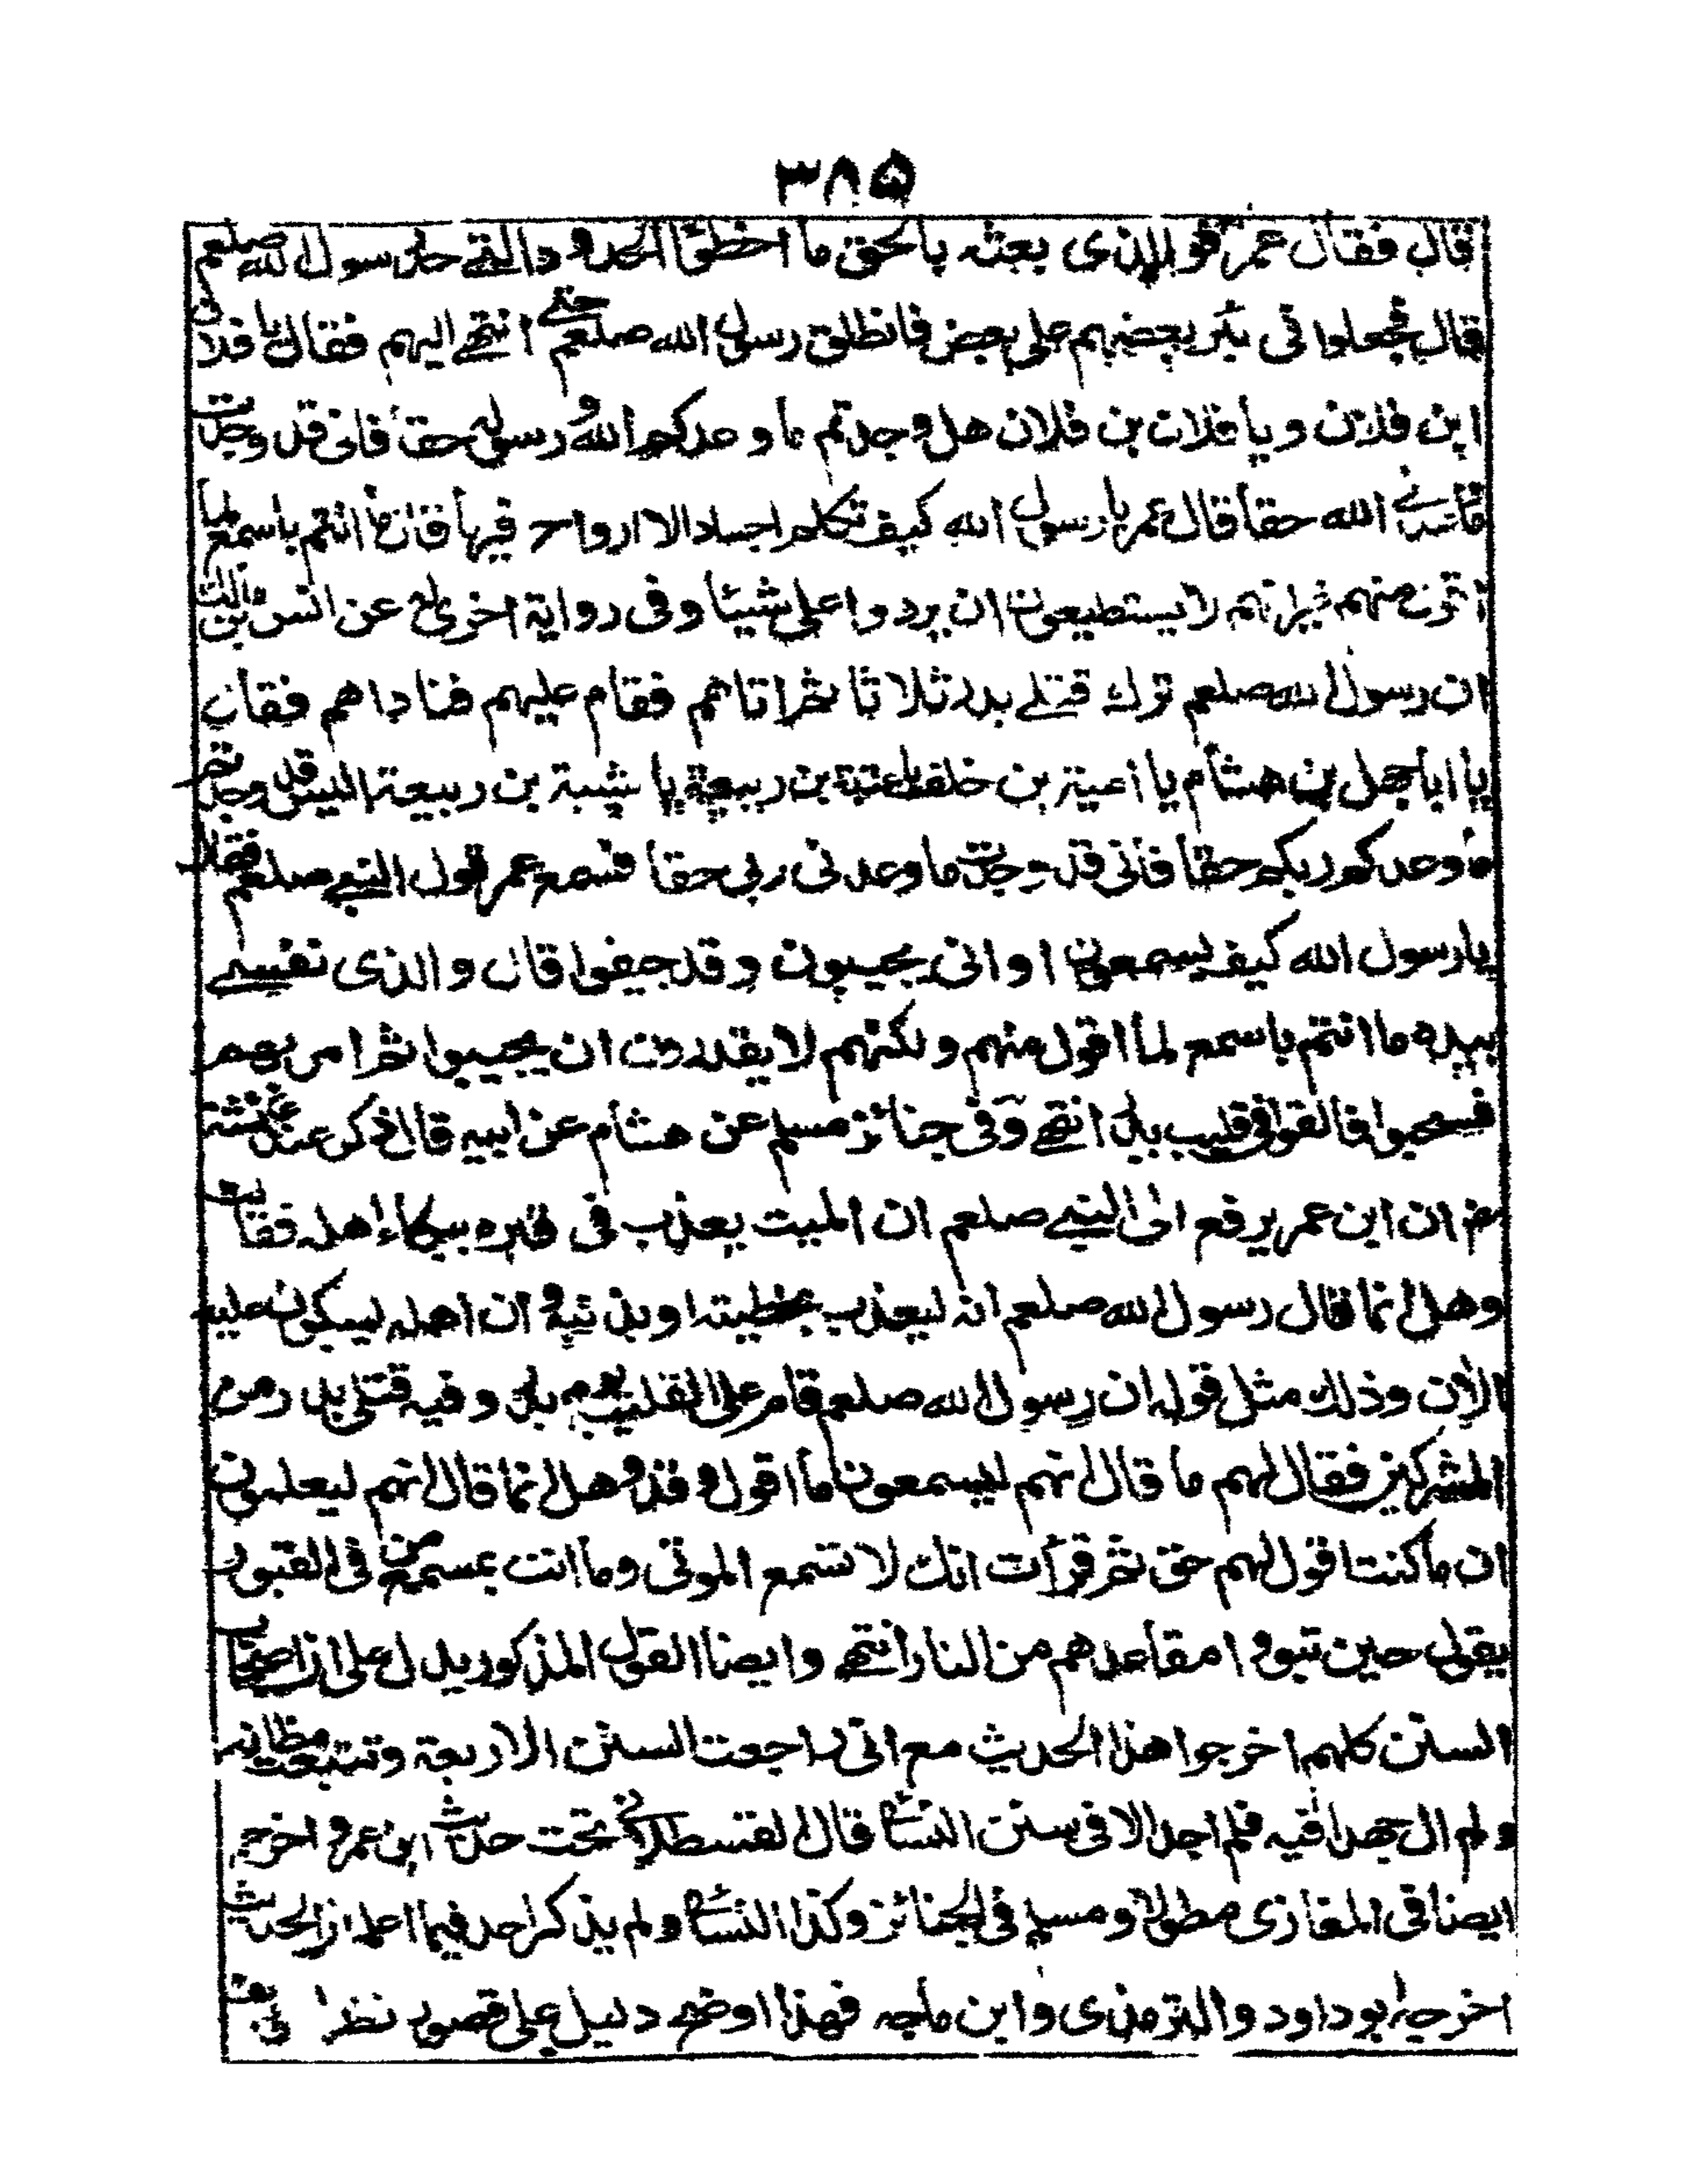 ٣٨٥
قال فقال عمر فو الذى بعثه بالحق ما اخطؤا الحدود التے حد رسول الله صلعم
قال فجعلوا فى بئر بعضهم على بعض فانطلق رسول الله صلعم حتے انتهے اليهم فقال يا فلان
ابن فلان ويا فلان بن فلان هل وجدتم ما وعدكم الله ورسوله حقا فانى قد وجدت
ما وعدنے الله حقا قال عمر يا رسول الله كيف تكلم اجسادا لا ارواح فيها قال ما انتم باسمع لما
اقول منهم غير انهم لا يستطيعون ان يردوا على شيئا وفى رواية اخرى له عن انس بن مالك
ان رسول الله صلعم ترك قتلے بدر ثلاثا ثم اتاهم فقام عليهم فناداهم فقال
يا ابا جهل بن هشام يا امية بن خلف يا عتبة بن ربيعة يا شيبة بن ربيعة اليس قد وجدتم
ما وعدكم ربكم حقا فانى قد وجدت ما وعدنى ربى حقا فسمع عمر قول النبے صلعم فقال
يا رسول الله كيف يسمعون او انى يجيبون وقد جيفوا قال والذى نفسے
بيده ما انتم باسمع لما اقول منهم ولكنهم لا يقدرون ان يجيبوا ثم امر بهم
فسحبوا فالقوا فى قليب بدر انتهے وفى جنائز مسلم عن هشام عن ابيه قال ذكر عند عائشة
رض ان ابن عمر يرفع الى النبے صلعم ان الميت يعذب فى قبره ببكاء اهله فقالت
وهل انما قال رسول الله صلعم انه ليعذب بخطيته او بذنبه و ان اهله ليبكون عليه
الآن وذلك مثل قوله ان رسول الله صلعم قام على القليب يوم بدر وفيه قتلى بدر من
المشركين فقال لهم ما قال انهم ليسمعون ما اقول و قد وهل انما قال انهم ليعلمون
ان ما كنت اقول لهم حق ثم قرأت انك لا تسمع الموتى وما انت بمسمع من فى القبور
يقول حين تبوءوا مقاعدهم من النار انتهے وايضا القول المذكور يدل على ان اصحاب
السنن كلهم اخرجوا هذا الحديث مع انى راجعت السنن الاربعة وتتبعت مظانه
ولم ال جهدا فيه فلم اجد الا فى سنن النسائے قال القسطلانے تحت حديث ابن عمر و اخرجه
ايضا فى المغازى مطولا ومسلم فى الجنائز وكذا النسائے ولم يذكر احد فيما اعلم ان الحديث
اخرجه ابو داود والترمذى وابن ماجه فهذا اوضح دليل على قصور نظر